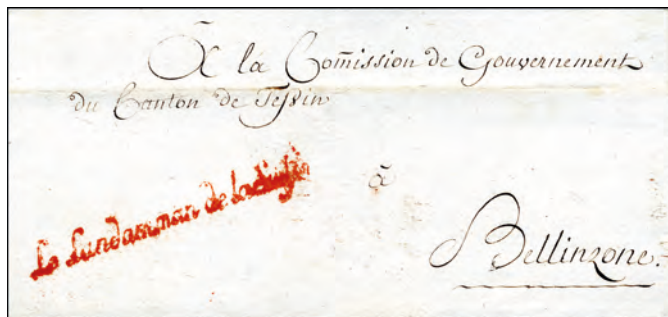 À la Com̃ission de Gouvernement
du Canton de Teſsin
Le Landamman de la Suisse
à
Bellinzone.